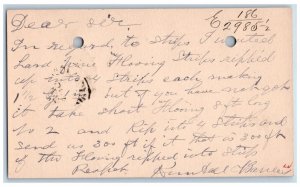 Dear Sir 186
E 2985½
In regard, to Strips I wanted
hard Flooring Strips ripped
up into 4 Strips each making
but if you have not got
it take short Flooring 8 ft long
No 2 and Rip into 4 Strips and
send us 300 ft if it that is 300 ft
of the Flooring ripped into Strips
Respect